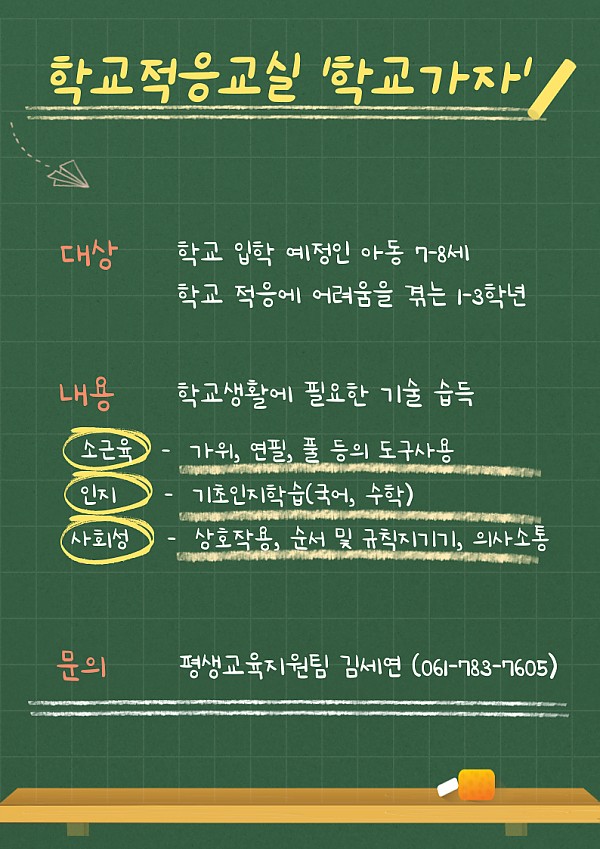 학교적응교실 '학교가자'
대상 학교 입학 예정인 아동 7-8세
학교 적응에 어려움을 겪는 1-3학년
내용 학교생활에 필요한 기술 습득
소근육 - 가위, 연필, 풀 등의 도구사용
인지 - 기초인지학습(국어, 수학)
사회성 - 상호작용, 순서 및 규칙지기기, 의사소통
문의 평생교육지원팀 김세연 (061-783-7605)